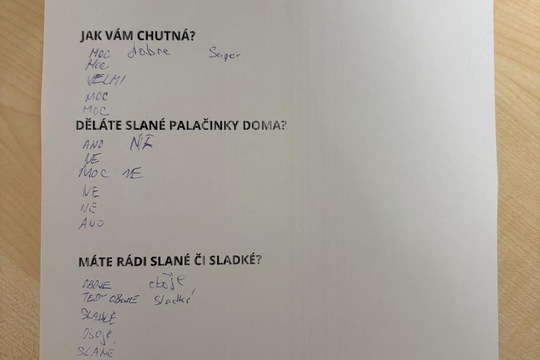 JAK VÁM CHUTNÁ?
MOC dobre Super
MOC
VELMI
MOC
MOC
DĚLÁTE SLANÉ PALAČINKY DOMA?
ANO NE
NE
MOC NE
NE
NE
ANO
MÁTE RÁDI SLANÉ ČI SLADKÉ?
OBOJE oboje
TEDY OBOJE Sladké
SLADKÉ
Oboje
SLANÉ